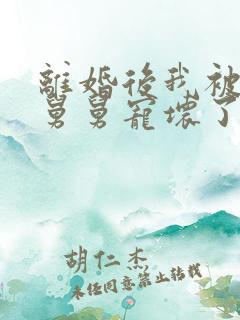 離婚後我被
舅舅寵壞了
胡仁杰
未經同意禁止轉載